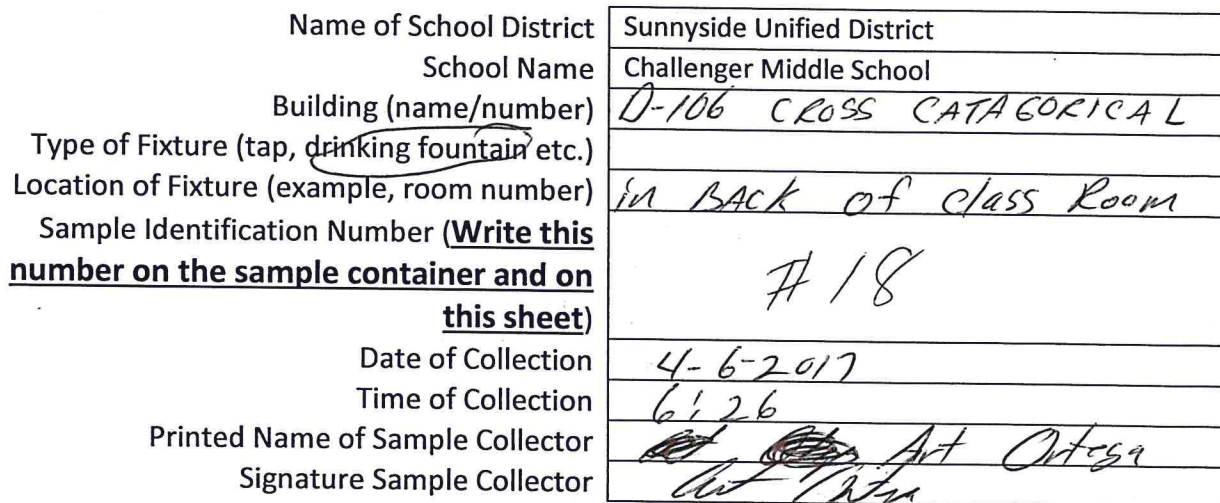 Name of School District Sunnyside Unified District
School Name Challenger Middle School
Building (name/number) D-106 CROSS CATAGORICAL
Type of Fixture (tap, drinking fountain etc.)
Location of Fixture (example, room number) in BACK of class Room
Sample Identification Number (Write this
number on the sample container and on
this sheet)
# 18
Date of Collection 4-6-2017
Time of Collection 6:26
Printed Name of Sample Collector Art Ortega
Signature Sample Collector Art